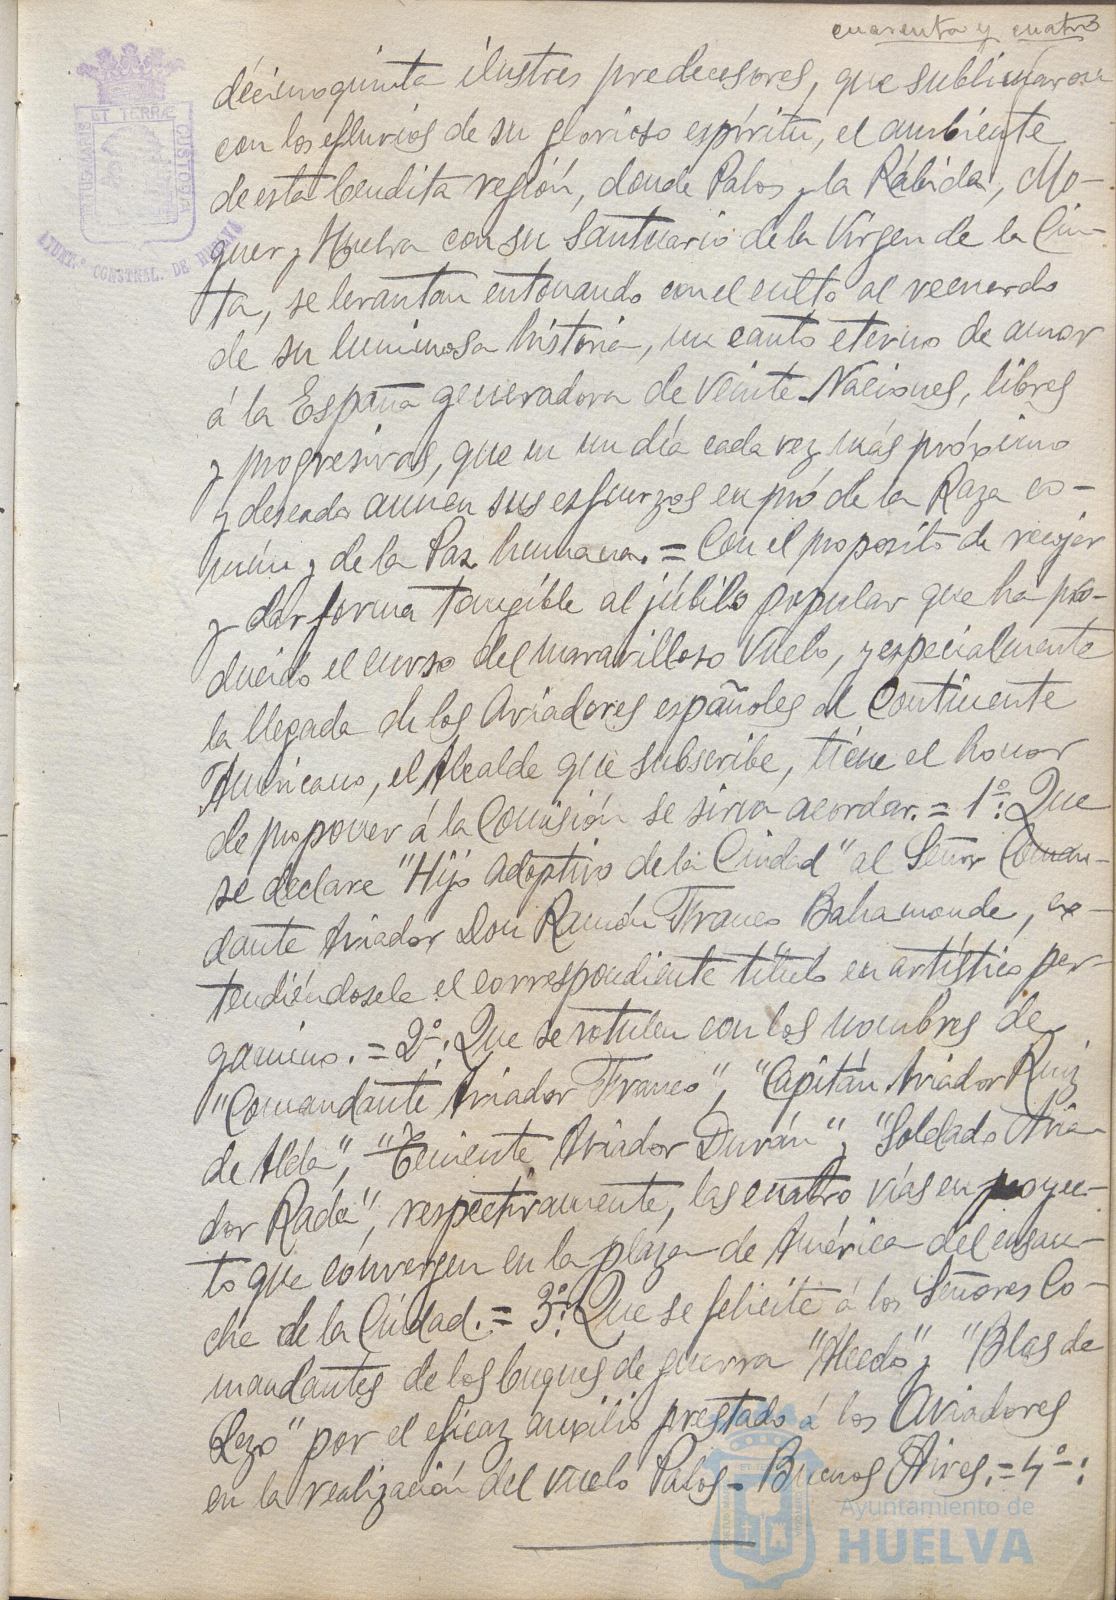 cuarenta y cuatro
décimoquinta ilustres predecesores, que sublimaron
con los efluvios de su glorioso espíritu, el ambiente
de esta bendita región, donde Palos y la Rábida, Mo-
guer y Huelva con su Santuario de la Virgen de la Cin-
ta, se levantan entonando con el culto al recuerdo
de su luminosa historia, un canto eterno de amor
á la España generadora de veinte Naciones, libres
y progresivas, que en un día cada vez más próximo
y deseado aunen sus esfuerzos en pró de la Raza co-
mún y de la Paz humana. = Con el proposito de recojer
y dar forma tangible al júbilo popular que ha pro-
ducido el curso del maravilloso vuelo, y especialmente
la llegada de los Aviadores españoles al Continente
Americano, el Alcalde que subscribe, tiene el honor
de proponer á la Comisión se sirva acordar. = 1º: Que
se declare "Hijo adoptivo de la Ciudad" al Señor Coman-
dante Aviador Don Ramón Franco Bahamonde, ex-
tendiéndosele el correspondiente título en artístico per-
gamino. = 2º: Que se rotulen con los nombres de
"Comandante Aviador Franco", "Capitán Aviador Ruiz
de Alda", "Teniente Aviador Durán", "Soldado Avia-
dor Rada", respectivamente, las cuatro vías en proyec-
to que convergen en la plaza de América del ensan-
che de la Ciudad. = 3º: Que se felicite á los Señores Co-
mandantes de los buques de guerra "Alcedo" y "Blas de
Lezo" por el eficaz auxilio prestado á los Aviadores
en la realización del vuelo Palos-Buenos Aires. = 4º:
ET TERRÆ
CUSTODIA
AYUNT.º CONSTNAL. DE HUELVA
Ayuntamiento de
HUELVA